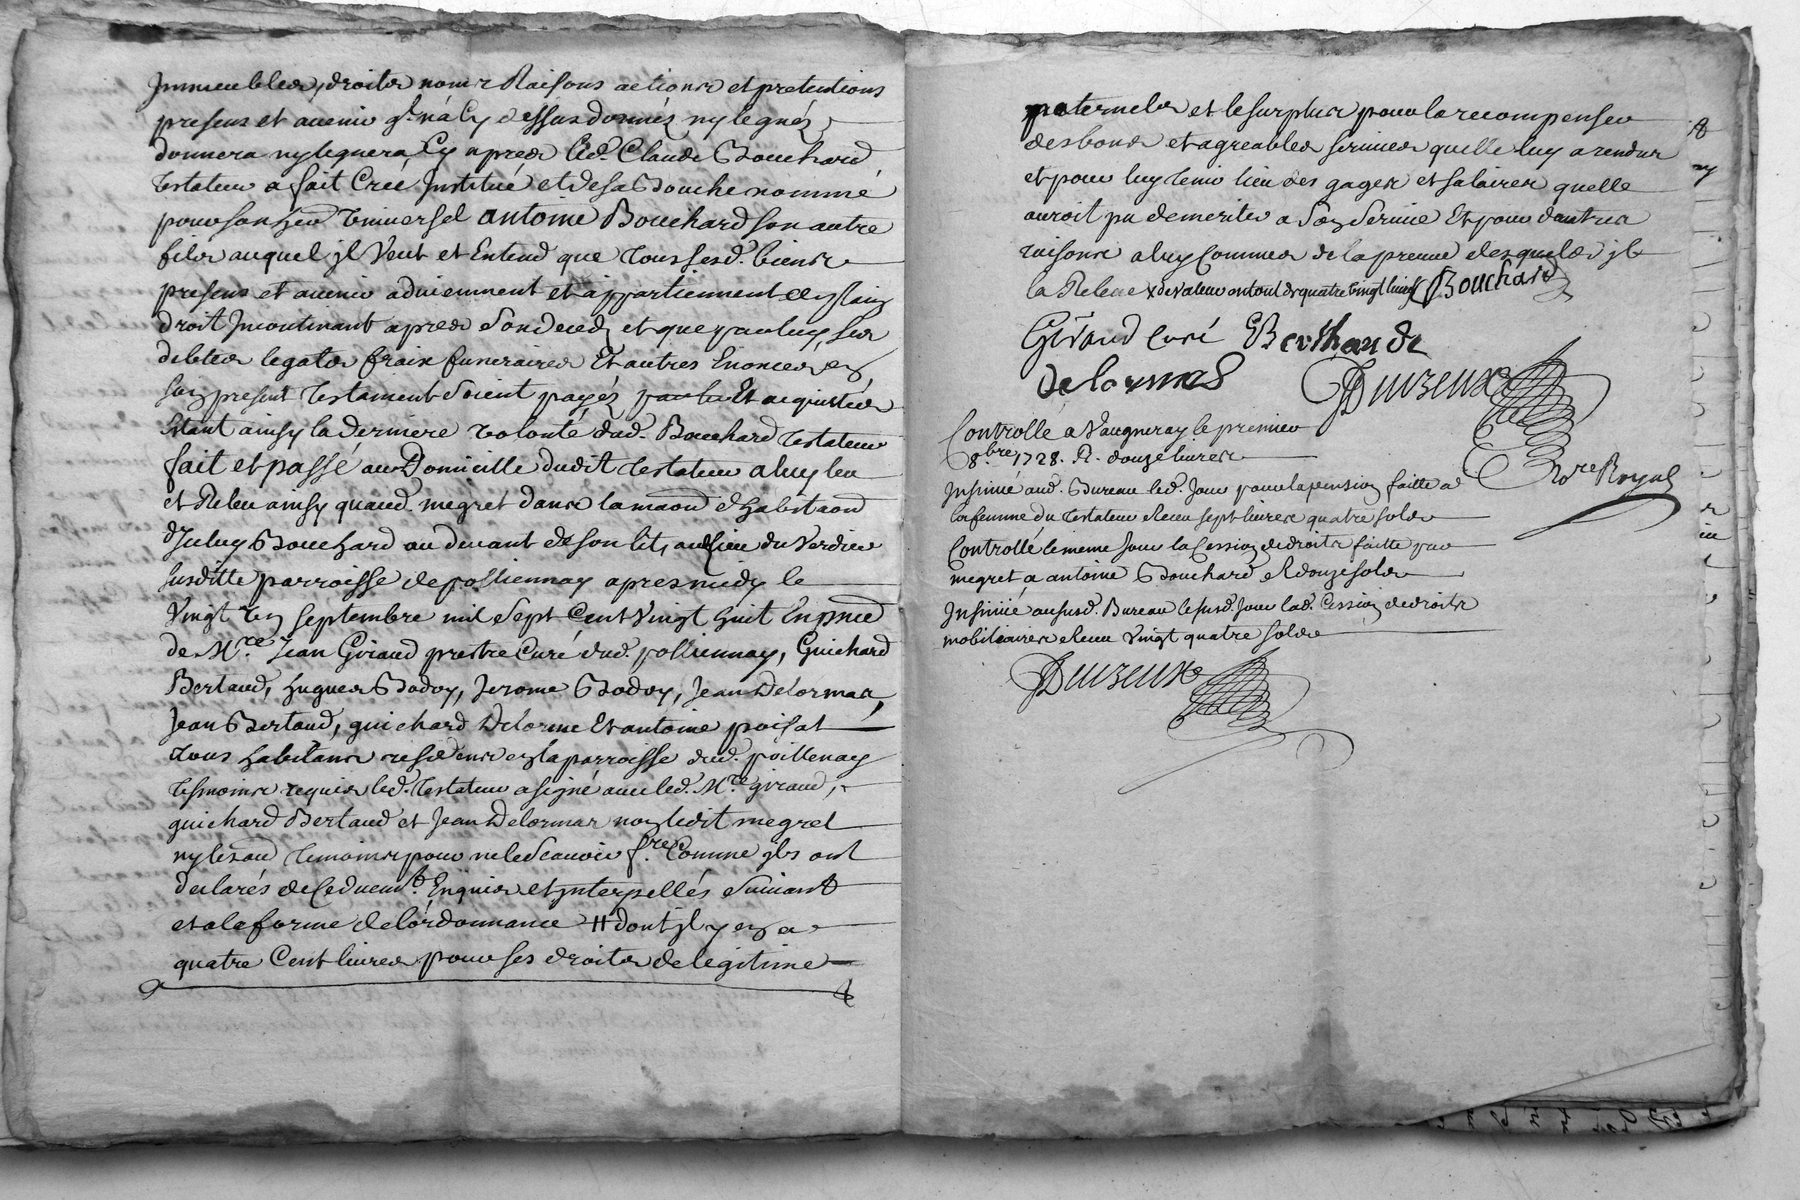 Immeubles, droits noms Raisons actions et pretentions
presens et avenir qu'il n'a Cy dessus donnéz ny leguéz
donnera ny leguera, Cy apres led. Claude Bouchard
testateur a fait Creé Institué et de sa Bouche nommé
pour son heu universel antoine Bouchard son autre
fils auquel jl Veut et Entend que tous sesd. biens
presens et avenir adviennent et appartiennent de plain
droit Incontinant apres son deced et que par luy ses
debtes legats fraix funeraires Et autres Enonces en
son present testament soient payéz Et acquittes
Estant ainsy la derniere volonté dud. Bouchard testateur
fait et passé au Domicille dudit testateur a luy leu
et Releu ainsy quaud. megret dans la maõn d'habitaõn
d'Iceluy Bouchard au devant de son lit, au lieu du Verdier
susditte parroisse de polliennay apres midy le
Vingt un septembre mil sept Cent Vingt huit En pñce
de Mre Jean Giraud prestre Curé dud. pollionnay, Guichard
Bertaud, hugues Bodoy, Jerome Bodoy, Jean Delormas,
Jean Bertaud, guichard Delorme Et antoine poisat
tous habitans residens en la parroisse dud. poillenay
tesmoins requis led. testateur a signé avec led. Mre giraud,
guichard Bertaud et Jean Delormas non ledit megret
ny les au temoins pour ne le scavoir fre Comme jls ont
declarés de Ce duem.t Enquis et Interpellés suivant
et a la forme de l'ordonnance # dont jl y en a
quatre Cent livres pour ses droits de legitime
paternels et le surplus pour la recompenser
des bons et agreables services quelle luy a rendus
et pour luy tenir lieu des gages et salaires quelle
auroit pu demeriter a son service Et pour dautres
raisons a luy Connues de la preuve desquels jl
la Releve x de valeur en tout de quatre vingt livres Bouchard
Giraud curé GBerthaude
delormas Duvzeux
Controllé a Vaugneray le premier
8.bre 1728. R. douze livres
Nore Royal
Insinué aud. Bureau led. Jour pour la pension faitte a
la femme du testateur Receu sept livres quatre sols
Controllé le meme Jour la Cession de droits faitte par
megret a antoine Bouchard R douze sols
Insinué au susd. Bureau le susd. Jour lad. Cession de droits
mobiliaires Receu Vingt quatre sols
Duvzeux